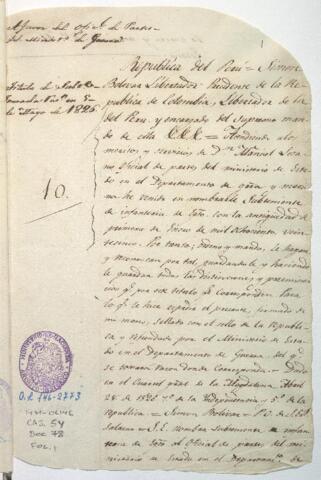 A favor del Ofl. de Partes
del Ministº. de Guerra
Título de Subte
tomada razon en 5
de Mayo de 1826.
10.
República del Perú = Simon
Bolivar Libertador Presidente de la Re
publica de Colombia, Libertador de la
del Peru, y encargado del Supremo man
do de ella &&& = Atendiendo a los
meritos y servicios de Dn. Manuel Loza
no oficial de partes del ministerio de Esta
do en el Departamento de grra y marina
he venido en nombrarle Subteniente
de infanteria de Exto. con la antiguedad de
primero de Enero de mil ochocientos vein
te seis. Por tanto; ordeno y mando, le hayan
y reconozcan por tal, guardandole y haciendole
le guarden todas las distinciones, y preeminen
cias qe. por este titulo le corresponden. Para
lo qe. le hice expedir el presente, firmado de
mi mano, sellado con el sello de la republi
ca y refrendado por el Ministro de Esta
do en el Departamento de Guerra del qe.
se tomará razon donde corresponda = Dado
en el Cuartel gral. de la Magdalena Abril
28 de 1826 7º. de la Yndependencia y 5º. de la
republica = Simon Bolivar = P.O. de S.E. =
Salazar = S.E. nombra subteniente de infan
teria de Exto. al Oficial de partes del mi
nisterio de Estado en el Departamento de
O.L. 146-2773
CAJ. 54
DOC 78
FOL. 1